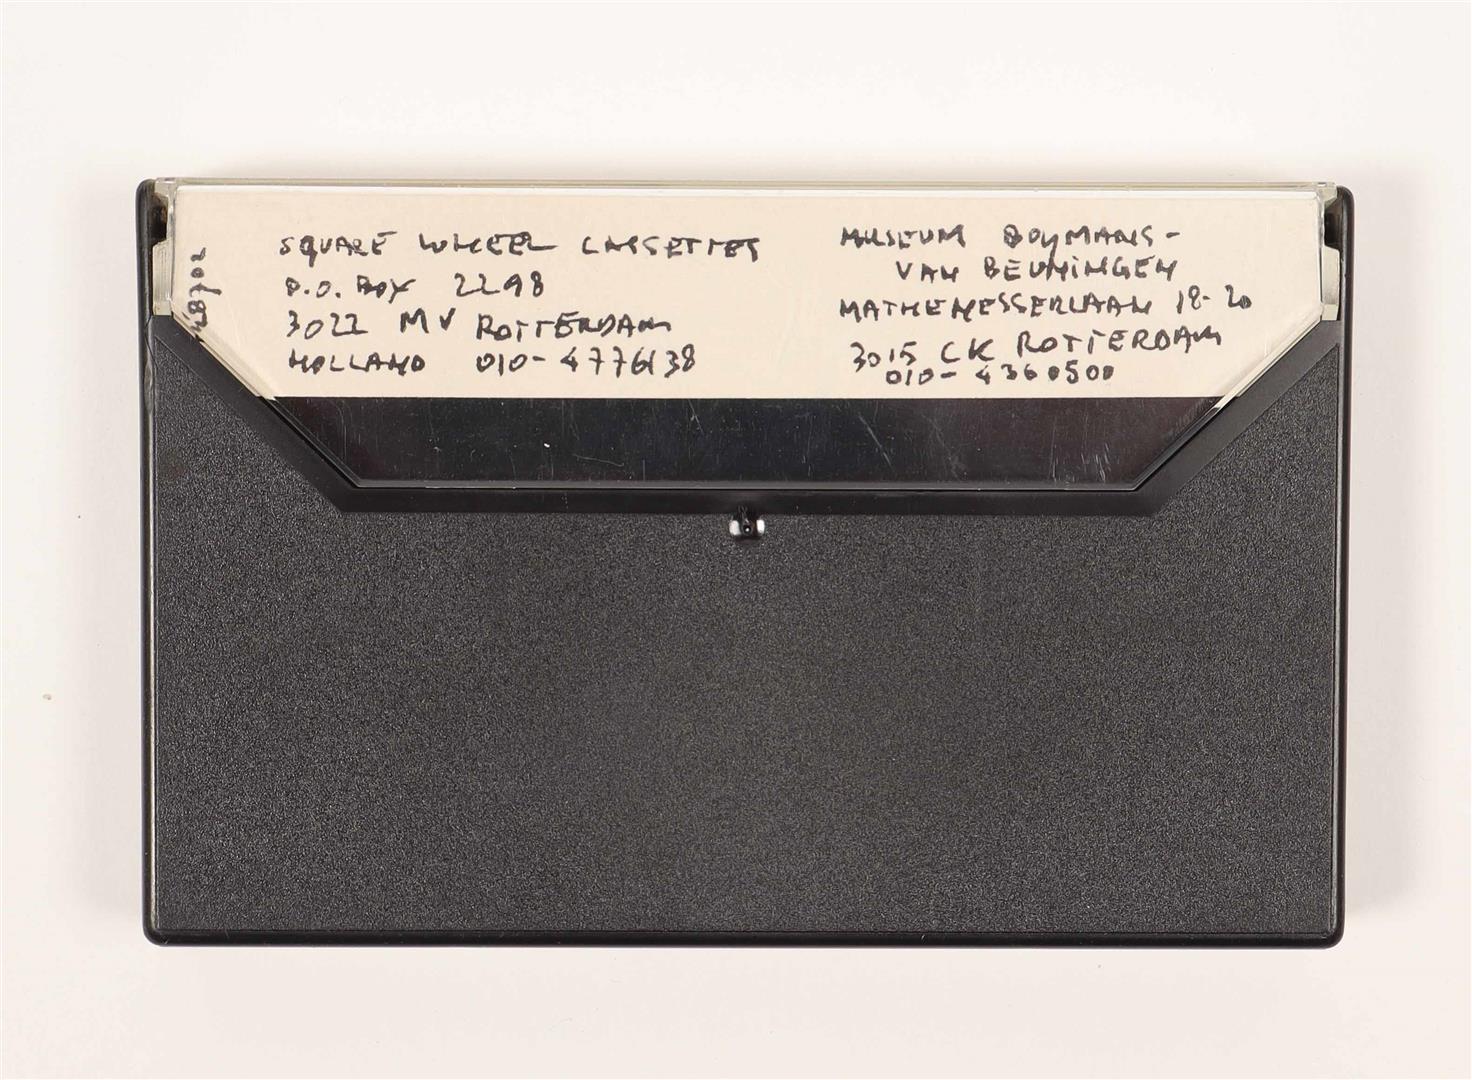 SQUARE WHEEL CASSETTES
P.O. BOX 2298
3022 MV ROTTERDAM
HOLLAND 010-4776138
MUSEUM BOYMANS-
VAN BEUNINGEN
MATHENESSERLAAN 18-20
3015 CK ROTTERDAM
010-4360500